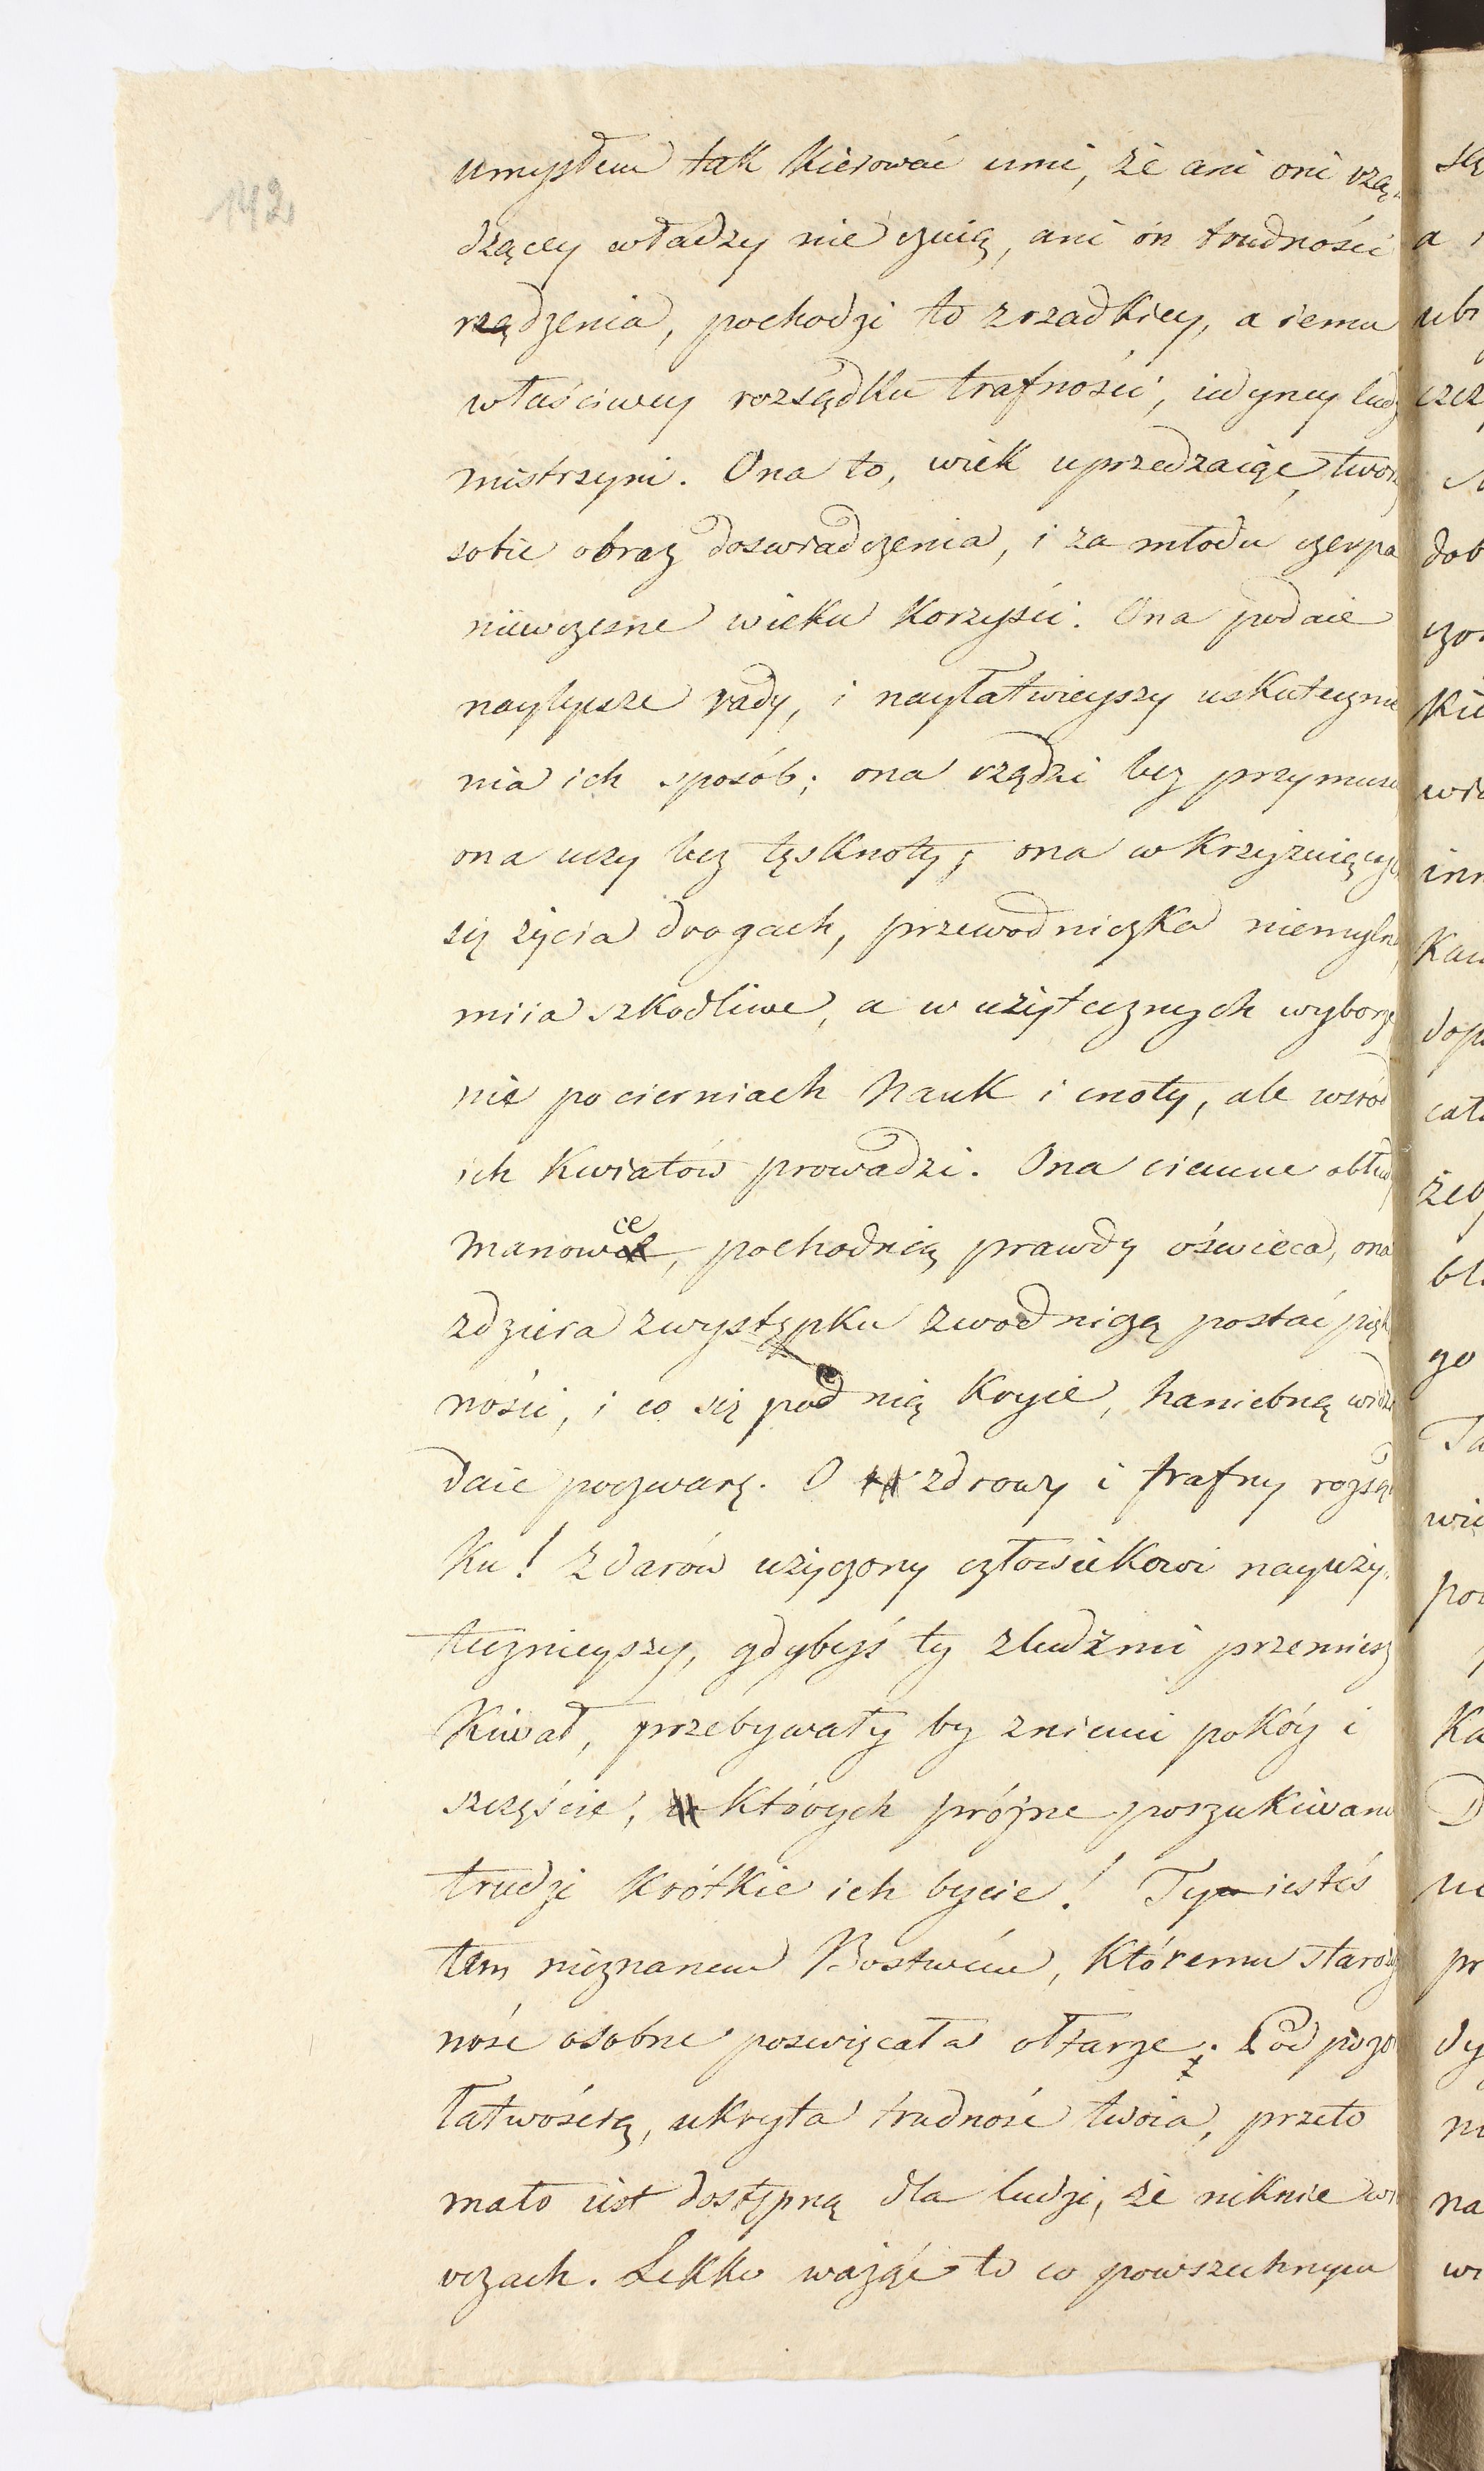 142
umysłem tak kierować umi, że ani oni rzą-
dzącey władzy nie czuią, ani ón trudności
rządzenia, pochodzi to z rzadkiey, a iemu
właściwey rozsądku trafności, iedyney ludz
mistrzyni. Ona to, wiek uprzedzaiąc, tworz
sobie obraz doswiadczenia, i za młodu czerpa
niewczesne wieku korzyści. Ona podaie
naylepsze rady, i nayłatwieyszy uskutecznie
nia ich sposób; ona rządzi bez przymusu
ona uczy bez tęsknoty; ona w krzyżuiącyc
się życia drogach, przewodniczka niemylna
miia szkodliwe, a w użytecznych wyborze
nie po cierniach Nauk i cnoty, ale wśród
ich kwiatów prowadzi. Ona ciemne obłud
manowce, pochodnią prawdy oświeca, ona
zdziera z występku zwodniczą postać pięk
ności, i co się pod nią kryie, haniebną widzi
daie poczwarę. O zdrowy i trafny rozsą
ku! Z darów użyczony człowiekowi nayuży-
tecznieyszy, gdybyś ty z ludźmi przemiesz
kiwał, przebywały by z niemi pokóy i
szczęście, których prózne poszukiwani
trudzi krótkie ich bycie! Ty iesteś
tem nieznanem Bostwem, któremu staroży
ność osobne poswięcała ołtarze. Pod pozo
łatwością, ukryta trudność twoia, przeto
mało iest dostępną dla ludzi, że niknie w
oczach. Lekko ważąc to co powszechnym
się
a
ubi
czez
dob
czo
kie
wia
inn
kaw
dopo
cał
żeb
bl
go
Ta
wie
po
Ka
D
ue
pr
dy
ni
na
wi